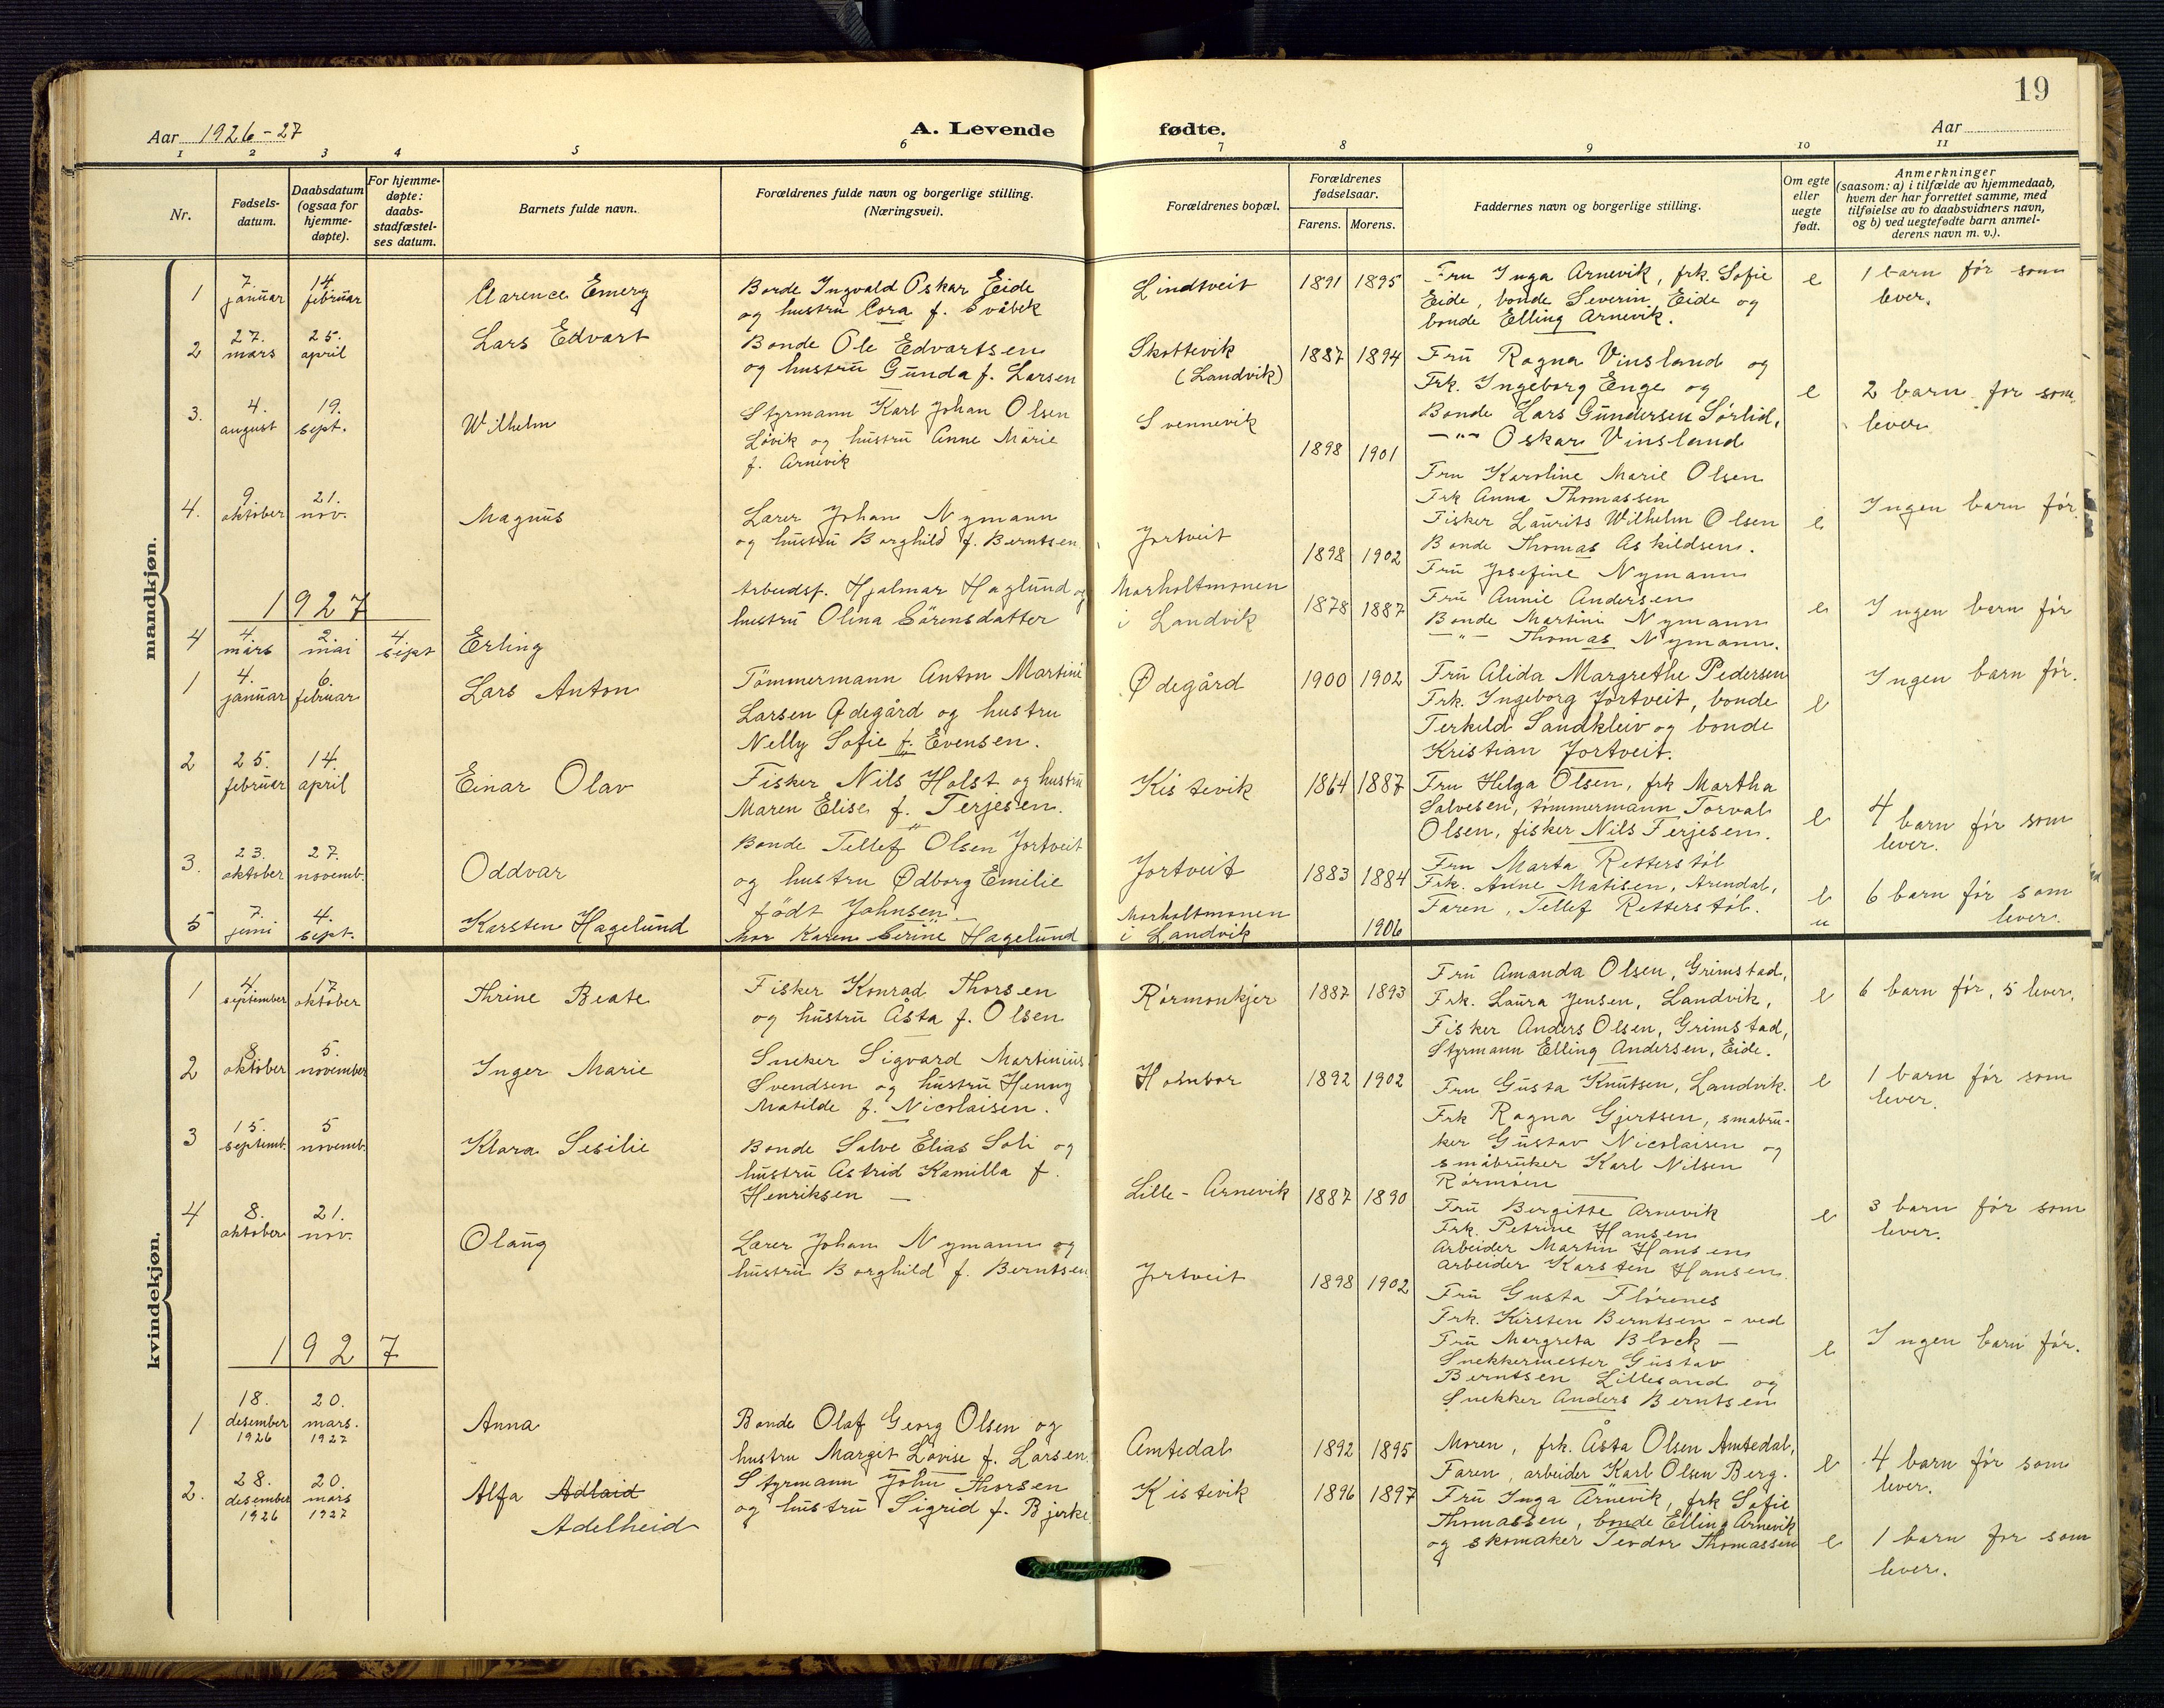 19
Aar 1926-27
A. Levende fødte.
Aar
1 2 3 4 5 6 7 8 9 10 11
Nr.
Fødsels-
datum.
Daabsdatum
(ogsaa for
hjemme-
døpte).
For hjemme-
døpte:
daabs-
stadfæstel-
ses datum.
Barnets fulde navn.
Forældrenes fulde navn og borgerlige stilling.
(Næringsvei).
Forældrenes bopæl.
Forældrenes
fødselsaar.
Farens. Morens.
Faddernes navn og borgerlige stilling.
Om egte
eller
uegte
født.
Anmerkninger
(saasom: a) i tilfælde av hjemmedaab,
hvem der har forrettet samme, med
tilføielse av to daabsvidners navn,
og b) ved uegtefødte barn anmel-
derens navn m. v.).
mandkjøn.
1
7.
januar
14
februar
Clarence Emery
Bonde Ingvald Oskar Eide
og hustru Cora f. Svåbek
Lindtveit
1891 1895
Fru Inga Arnevik, frk. Sofie
Eide, bonde Severin Eide og
bonde Elling Arnevik.
e
1 barn før som
lever.
2
27.
mars
25.
april
Lars Edvart
Bonde Ole Edvartsen
og hustru Gunda f. Larsen
Skottevik
(Landvik)
1887 1894
Fru Ragna Vinsland og
Frk. Ingeborg Enge og
Bonde Lars Gundersen Sørlid,
—"— Oskar Vinsland
e
2 barn før som
lever
3.
4.
august
19.
sept.
Wilhelm
Styrmann Karl Johan Olsen
Løvik og hustru Anne Marie
f. Arnevik
Svennevik
1898 1901
Fru Karoline Marie Olsen
Frk Anna Thomassen
Fisker Laurits Wilhelm Olsen
Bonde Thomas Askildsen.
e
Ingen barn før.
4.
9
oktober
21.
nov.
Magnus
Lærer Johan Nymann
og hustru Borghild f. Berntsen
Jortveit
1898 1902
Fru Josefine Nymann
Fru Annie Andersen
Bonde Martini Nymann
—"— Thomas Nymann.
e
Ingen barn før
1927
4
4.
mars
2.
mai
4.
sept
Erling
Arbeidsf. Hjalmar Haglund og
hustru Olina Sørensdatter
Morholtmonen
i Landvik
1878 1887
1
4.
januar
6.
februar
Lars Anton
Tømmermann Anton Martini
Larsen Ødegård og hustru
Nelly Sofie f. Evensen.
Ødegård
1900 1902
Fru Alida Margrethe Pedersen
Frk. Ingeborg Jortveit, bonde
Terkild Sandkleiv og bonde
Kristian Jortveit.
e
Ingen barn før.
2
25.
februar
14.
april
Einar Olav
Fisker Nils Holst og hustru
Maren Elise f. Terjesen.
Kistevik
1864 1887
Fru Helga Olsen, frk Martha
Salvesen, tømmermann Torval
Olsen, fisker Nils Terjesen.
e
4 barn før som
lever.
3.
23.
oktober
27.
novemb.
Oddvar
Bonde Tellef Olsen Jortveit
og hustru Ødborg Emilie
født Johnsen
Jortveit
1883 1884
Fru Marta Retterstøl
Frk. Anne Matisen, Arendal,
Faren, Tellef Retterstøl.
e
6 barn før som
lever.
5
7.
juni
4.
sept.
Karsten Hagelund
Mor Karen Serine Hagelund
Morholtmonen
i Landvik
1906
u
kvindekjøn.
1
4.
september
17
oktober
Thrine Beate
Fisker Konrad Thorsen
og hustru Åsta f. Olsen
Rørmonkjer
1887 1893
Fru Amanda Olsen, Grimstad,
Frk. Laura Jensen, Landvik,
Fisker Anders Olsen, Grimstad,
Styrmann Elling Andersen, Eide.
e
6 barn før, 5 lever.
2
8.
oktober
5.
november
Inger Marie
Sneker Sigvard Martinius
Svendsen og hustru Henny
Matilde f. Nicolaisen.
1892 1902
Fru Gusta Knutsen, Landvik.
Frk Ragna Gjertsen, småbru-
ker Gustav Nicolaisen og
småbruker Karl Nilsen
Rørmoen
e
1 barn før som
lever.
3
15.
septemb.
5
novemb.
Klara Sesilie
Bonde Salve Elias Soli og
hustru Astrid Kamilla f.
Henriksen —
Lille-Arnevik
1887 1890
Fru Bergitte Arnevik
Frk. Petrine Hansen
Arbeider Martin Hansen
arbeider Karsten Hansen.
e
3 barn før som
lever.
4
8.
oktober
21.
nov.
Olaug
Lærer Johan Nymann og
hustru Borghild f. Berntsen
Jortveit
1898 1902
Fru Gusta Flørenes
Frk. Kirsten Berntsen - ved
Fru Margreta Block —
Snekkermester Gustav
Berntsen Lillesand og
Snekker Anders Berntsen
e
Ingen barn før.
1927
1
18.
desember
1926
20.
mars.
1927
Anna
Bonde Olaf Georg Olsen og
hustru Margit Lovise f. Larsen.
Amtedal
1892 1895
Moren, frk. Åsta Olsen Amtedal,
Faren, arbeider Karl Olsen Berg.
e
4 barn før som
lever.
2.
28.
desember
1926
20.
mars
1927
Alfa Adlaid
Adelheid
Styrmann John Thorsen
og hustru Sigrid f. Bjerke.
Kistevik
1896 1897
Fru Inga Arnevik, frk Sofie
Thomassen, bonde Elling Arnevik
og skomaker Teodor Thomassen
e
1 barn før som
lever.